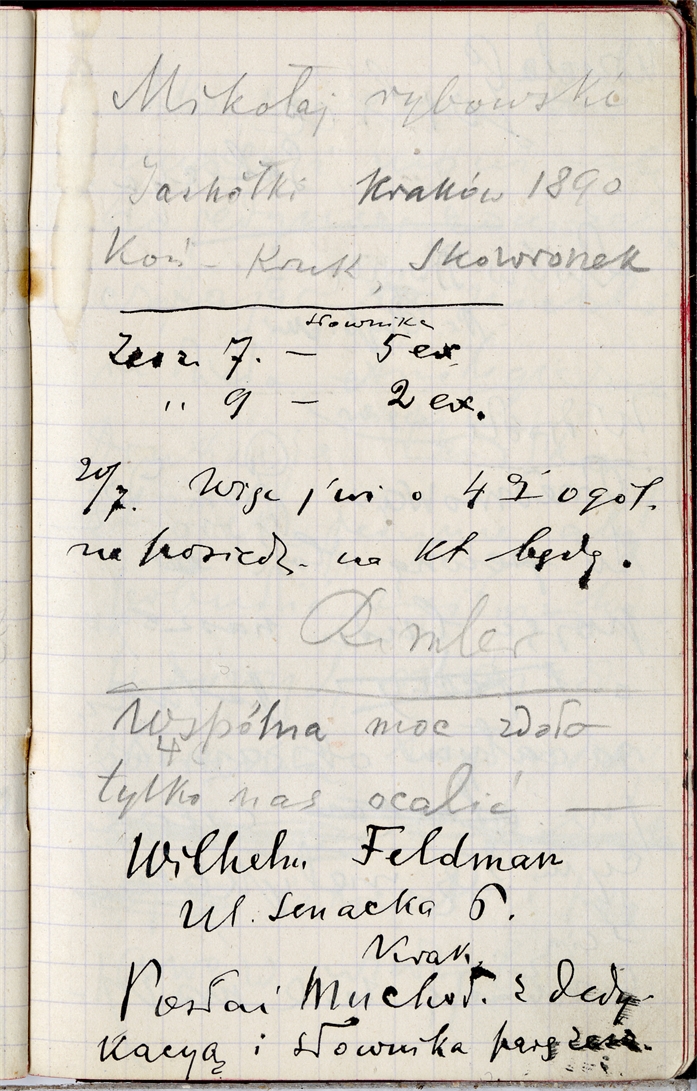 Mikołaj rybowski
Jaskółki Kraków 1890
Koń - Kruk, Skowronek
słownika
Zesz. 7. — 5 ex
„ 9 — 2 ex.
20/7. Więc j'wi o 4 ogól.
na posiedz. na Kł będę.
Rimler
Wspólna moc zdoła
4
tylko nas ocalić —
Wilhelm Feldman
Ul. Senacka 6.
Krak.
Posłać Muchoł. z dedy
kacyą i słownika parę zesz.